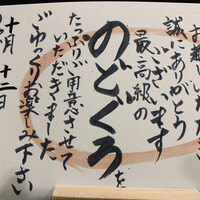 お越しいただき
誠にありがとう
ございます
最高級の
のどぐろを
たっぷり用意させて
いただきました
ごゆっくりお楽しみ下さい
十月 十二日